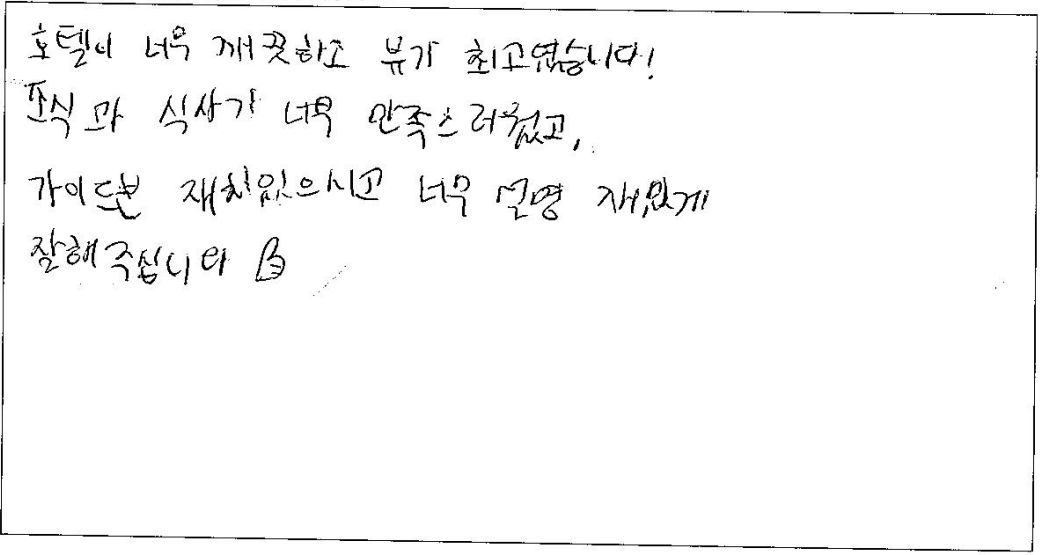 호텔이 너무 깨끗하고 뷰가 최고였습니다!
조식과 식사가 너무 만족스러웠고,
가이드분 재치있으시고 너무 설명 재밌게
잘해주십니다 👍